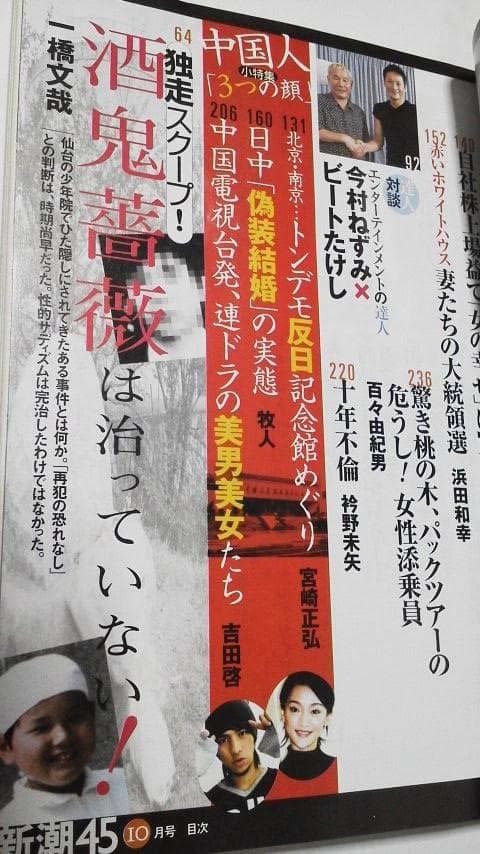 自社株上場益で「女の幸せ」に
152
赤いホワイトハウス 妻たちの大統領選 浜田和幸
236
驚き桃の木、パックツアーの
危うし！女性添乗員
百々由紀男
92
対談
エンターテインメントの達人
今村ねずみ×
ビートたけし
220
十年不倫 衿野未矢
中国人
小特集
「3つの顔」
131
北京・南京…トンデモ反日記念館めぐり 宮崎正弘
160
日中「偽装結婚」の実態 牧人
206
中国電視台発、連ドラの美男美女たち 吉田啓
64
独走スクープ！
酒鬼薔薇は治っていない！
一橋文哉
仙台の少年院でひた隠しにされてきたある事件とは何か。「再犯の恐れなし」
との判断は、時期尚早だった。性的サディズムは完治したわけではなかった。
新潮45 10月号 目次